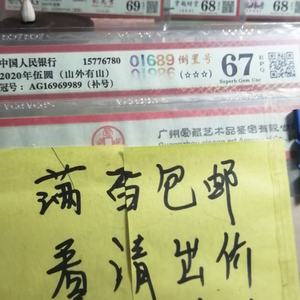 69
68
中国人民银行 15776780 01689 倒置号 67 EPQ
2020年伍圆（山外有山） 01986 (☆☆☆) Superb Gem Unc
冠号：AG16969989（补号）
广州爱藏艺术品鉴定有限公
满百包邮
看清出价